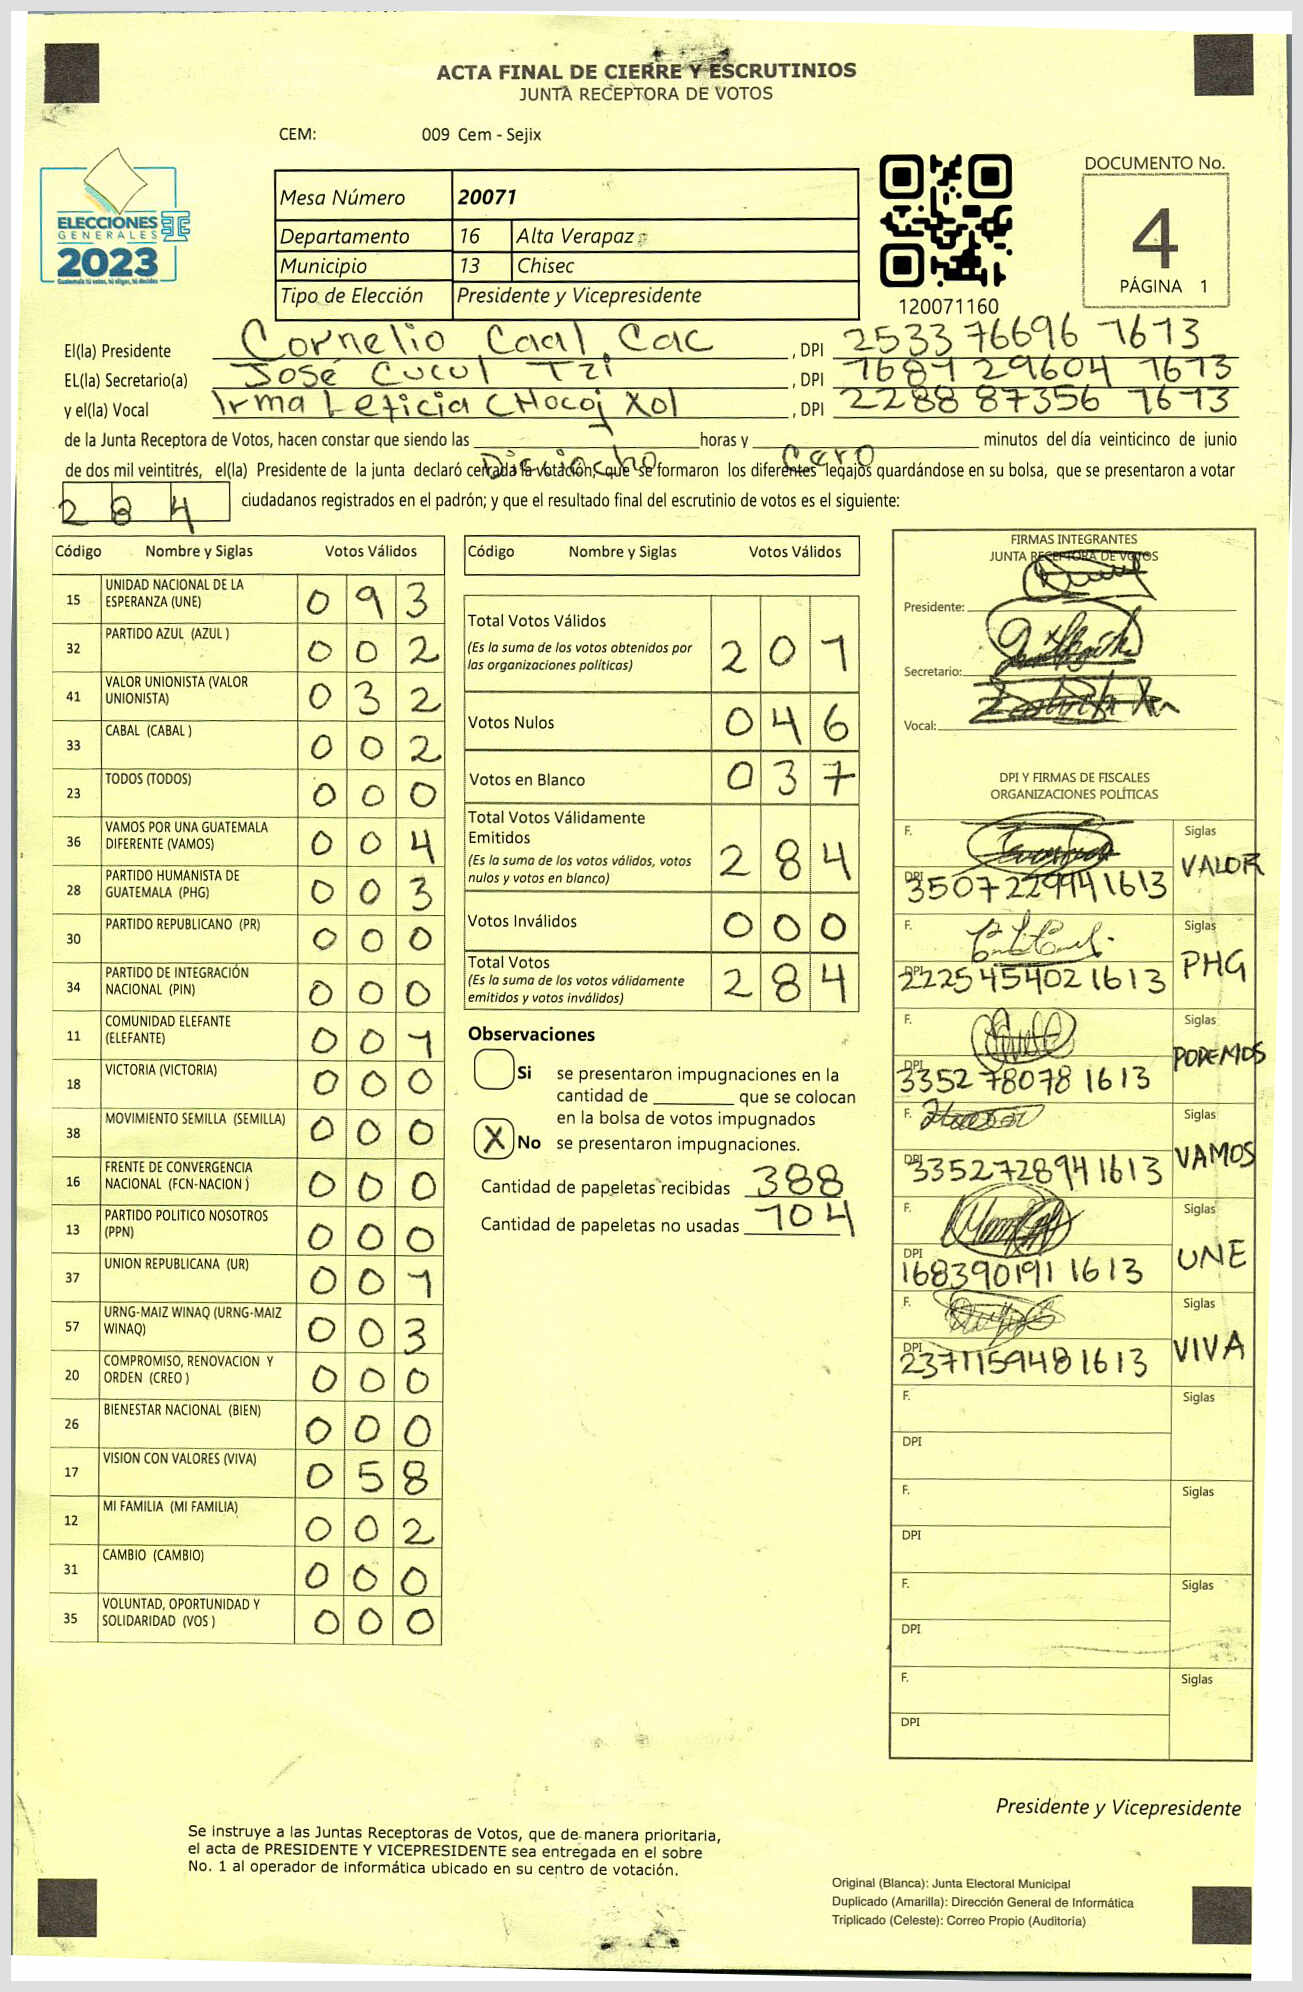 ACTA FINAL DE CIERRE Y ESCRUTINIOS
JUNTA RECEPTORA DE VOTOS
CEM: 009 Cem - Sejix
DOCUMENTO No.
4
PÁGINA 1
ELECCIONES
GENERALES
2023
Guatemala tú votas, tú eliges, tú decides
Mesa Número 20071
Departamento 16 Alta Verapaz
Municipio 13 Chisec
Tipo de Elección Presidente y Vicepresidente
120071160
El(la) Presidente Cornelio Caal Cac , DPI 2533 76696 1613
EL(la) Secretario(a) José Cucul Tzi , DPI 1681 29604 1613
y el(la) Vocal Irma Leticia CHocoj Xol , DPI 2288 87356 1613
de la Junta Receptora de Votos, hacen constar que siendo las Dieciocho horas y Cero minutos del día veinticinco de junio
de dos mil veintitrés, el(la) Presidente de la junta declaró cerrada la votación, que se formaron los diferentes legajos quardándose en su bolsa, que se presentaron a votar
284 ciudadanos registrados en el padrón; y que el resultado final del escrutinio de votos es el siguiente:
Código Nombre y Siglas Votos Válidos
15 UNIDAD NACIONAL DE LA ESPERANZA (UNE) 093
32 PARTIDO AZUL (AZUL ) 002
41 VALOR UNIONISTA (VALOR UNIONISTA) 032
33 CABAL (CABAL ) 002
23 TODOS (TODOS) 000
36 VAMOS POR UNA GUATEMALA DIFERENTE (VAMOS) 004
28 PARTIDO HUMANISTA DE GUATEMALA (PHG) 003
30 PARTIDO REPUBLICANO (PR) 000
34 PARTIDO DE INTEGRACIÓN NACIONAL (PIN) 000
11 COMUNIDAD ELEFANTE (ELEFANTE) 001
18 VICTORIA (VICTORIA) 000
38 MOVIMIENTO SEMILLA (SEMILLA) 000
16 FRENTE DE CONVERGENCIA NACIONAL (FCN-NACION ) 000
13 PARTIDO POLITICO NOSOTROS (PPN) 000
37 UNION REPUBLICANA (UR) 001
57 URNG-MAIZ WINAQ (URNG-MAIZ WINAQ) 003
20 COMPROMISO, RENOVACION Y ORDEN (CREO ) 000
26 BIENESTAR NACIONAL (BIEN) 000
17 VISION CON VALORES (VIVA) 058
12 MI FAMILIA (MI FAMILIA) 002
31 CAMBIO (CAMBIO) 000
35 VOLUNTAD, OPORTUNIDAD Y SOLIDARIDAD (VOS ) 000
Código Nombre y Siglas Votos Válidos
Total Votos Válidos
(Es la suma de los votos obtenidos por las organizaciones políticas) 201
Votos Nulos 046
Votos en Blanco 037
Total Votos Válidamente Emitidos
(Es la suma de los votos válidos, votos nulos y votos en blanco) 284
Votos Inválidos 000
Total Votos
(Es la suma de los votos válidamente emitidos y votos inválidos) 284
Observaciones
Si se presentaron impugnaciones en la
cantidad de ________ que se colocan
en la bolsa de votos impugnados
X No se presentaron impugnaciones.
Cantidad de papeletas recibidas 388
Cantidad de papeletas no usadas 104
FIRMAS INTEGRANTES
JUNTA RECEPTORA DE VOTOS
Presidente:
Secretario:
Vocal:
DPI Y FIRMAS DE FISCALES
ORGANIZACIONES POLÍTICAS
F. Siglas
DPI 3507229941613 VALOR
F. Siglas
DPI 2225454021613 PHG
F. Siglas
DPI 3352780781613 PODEMOS
F. Siglas
DPI 3352728941613 VAMOS
F. Siglas
DPI 1683901911613 UNE
F. Siglas
DPI 2371159481613 VIVA
F. Siglas
DPI
F. Siglas
DPI
F. Siglas
DPI
F. Siglas
DPI
Presidente y Vicepresidente
Se instruye a las Juntas Receptoras de Votos, que de manera prioritaria,
el acta de PRESIDENTE Y VICEPRESIDENTE sea entregada en el sobre
No. 1 al operador de informática ubicado en su centro de votación.
Original (Blanca): Junta Electoral Municipal
Duplicado (Amarilla): Dirección General de Informática
Triplicado (Celeste): Correo Propio (Auditoría)